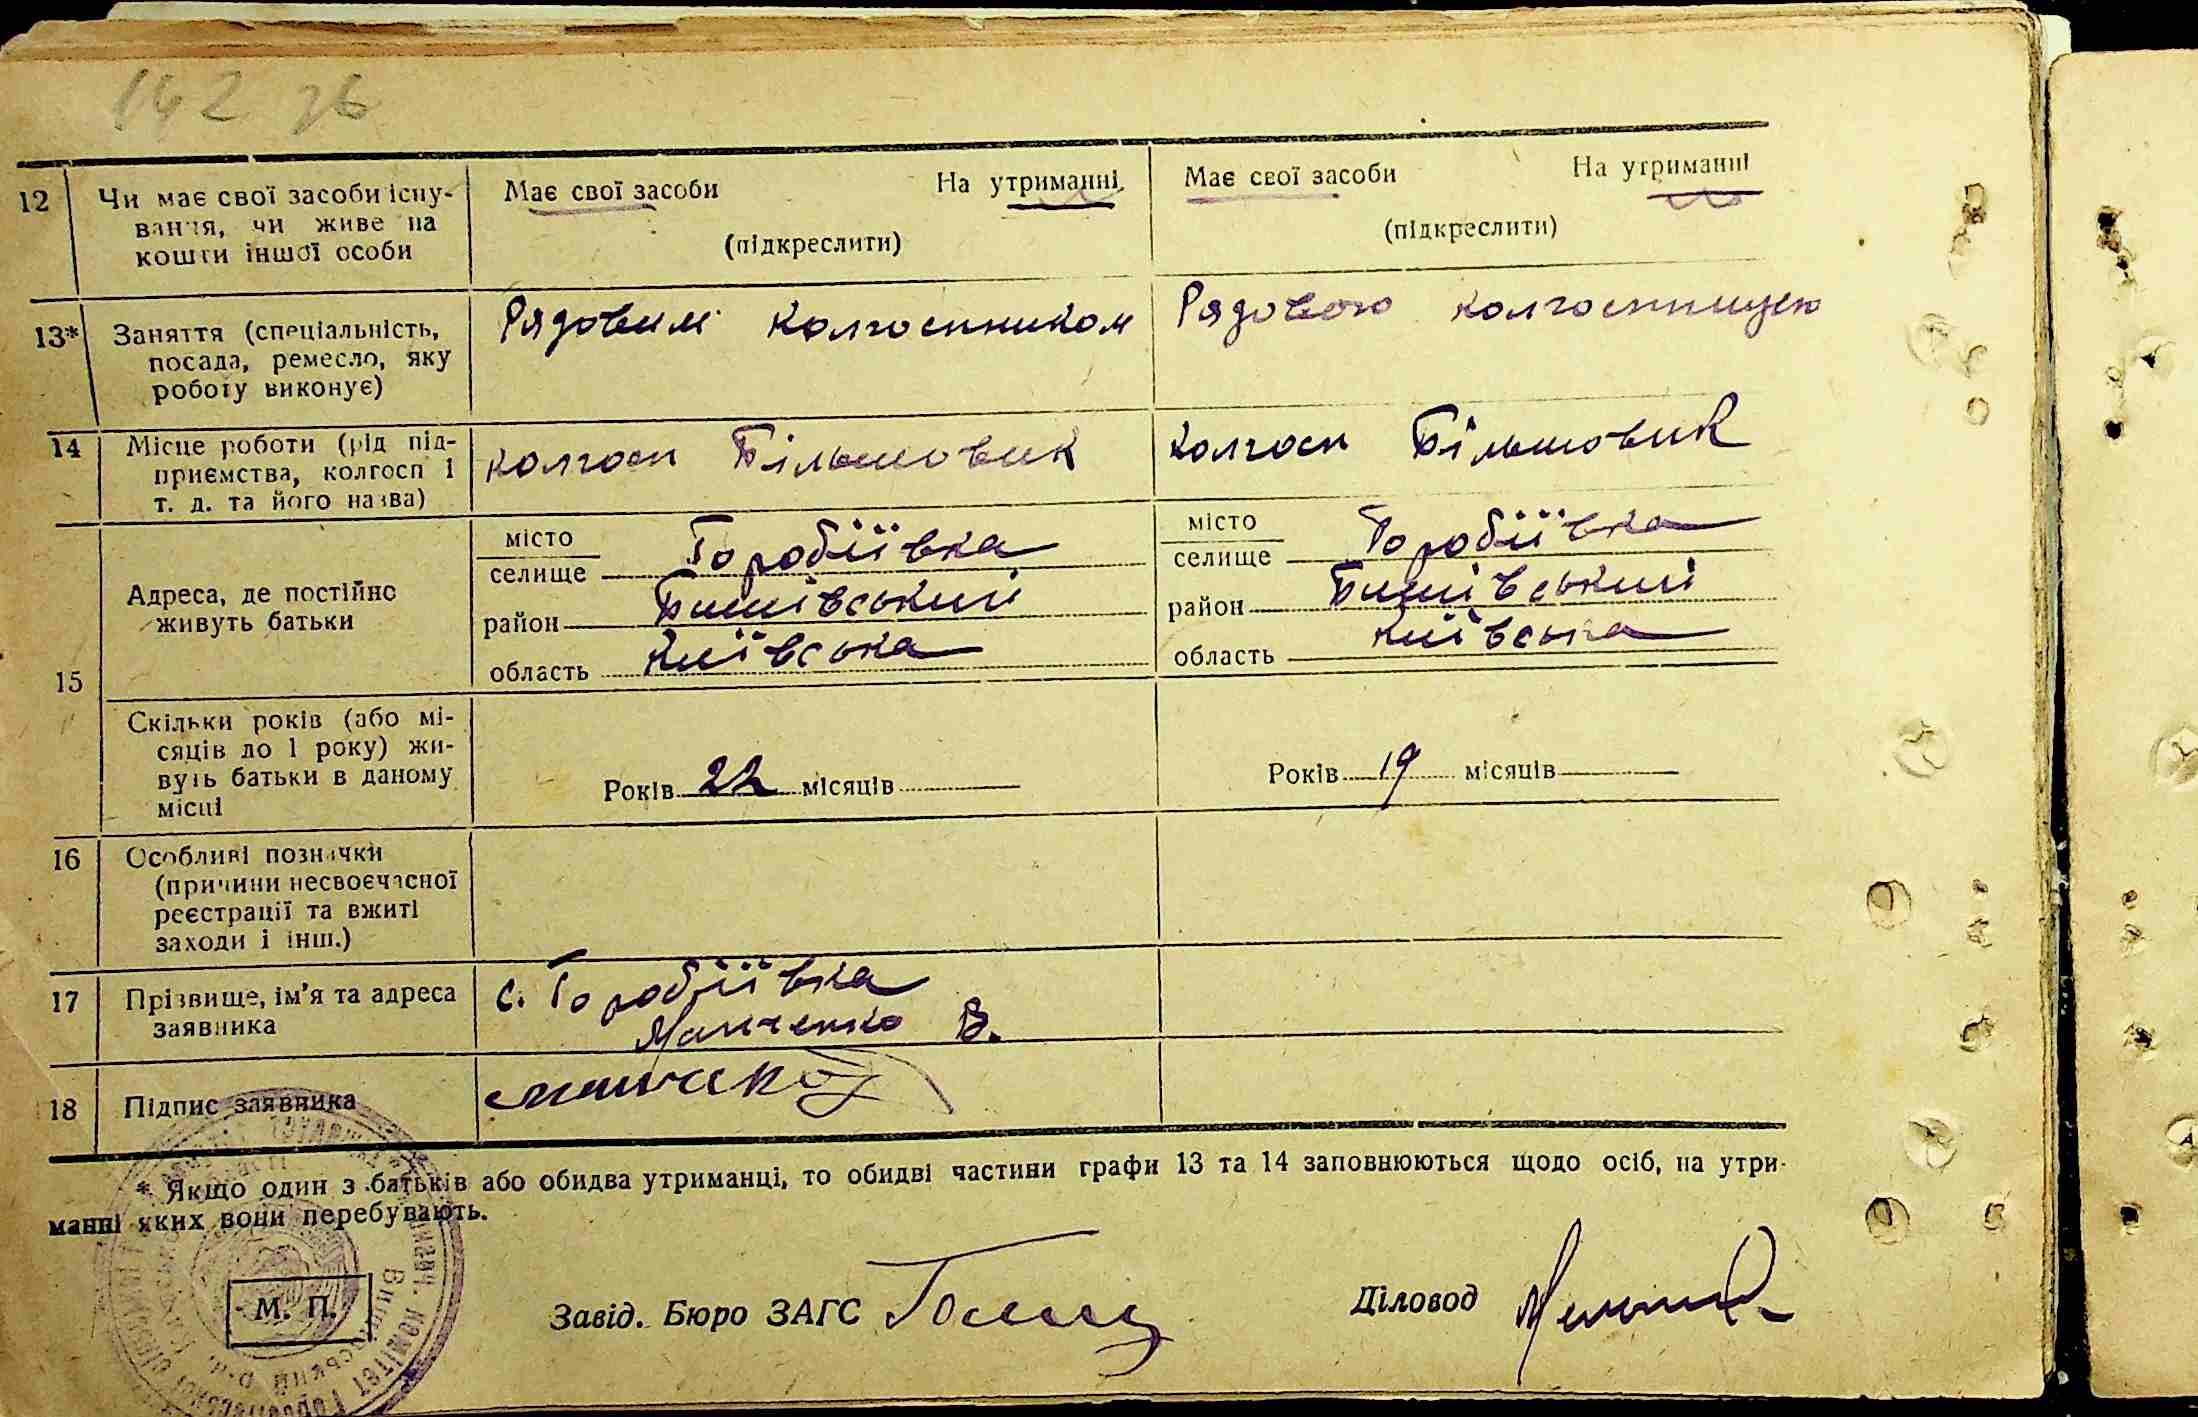 142 зв
12 Чи має свої засоби існу-
вання, чи живе на
кошти іншої особи
Має свої засоби На утриманні
(підкреслити)
Має свої засоби На утриманні
(підкреслити)
13* Заняття (спеціальність,
посада, ремесло, яку
роботу виконує)
Рядовим колгоспником
Рядовою колгоспницею
14 Місце роботи (рід під-
приємства, колгосп і
т. д. та його назва)
колгосп Більшовик
колгосп Більшовик
15 Адреса, де постійно
живуть батьки
місто
селище Горобіївка
район Бишівський
область Київська
місто
селище Горобіївка
район Бишівський
область Київська
Скільки років (або мі-
сяців до 1 року) жи-
вуть батьки в даному
місці
Років 22 місяців
Років 19 місяців
16 Особливі позначки
(причини несвоєчасної
реєстрації та вжиті
заходи і інш.)
17 Прізвище, ім'я та адреса
заявника
с. Горобіївка
В.
18 Підпис заявника
* Якщо один з батьків або обидва утриманці, то обидві частини графи 13 та 14 заповнюються щодо осіб, на утри-
манні яких вони перебувають.
М. П.
Завід. Бюро ЗАГС
Діловод